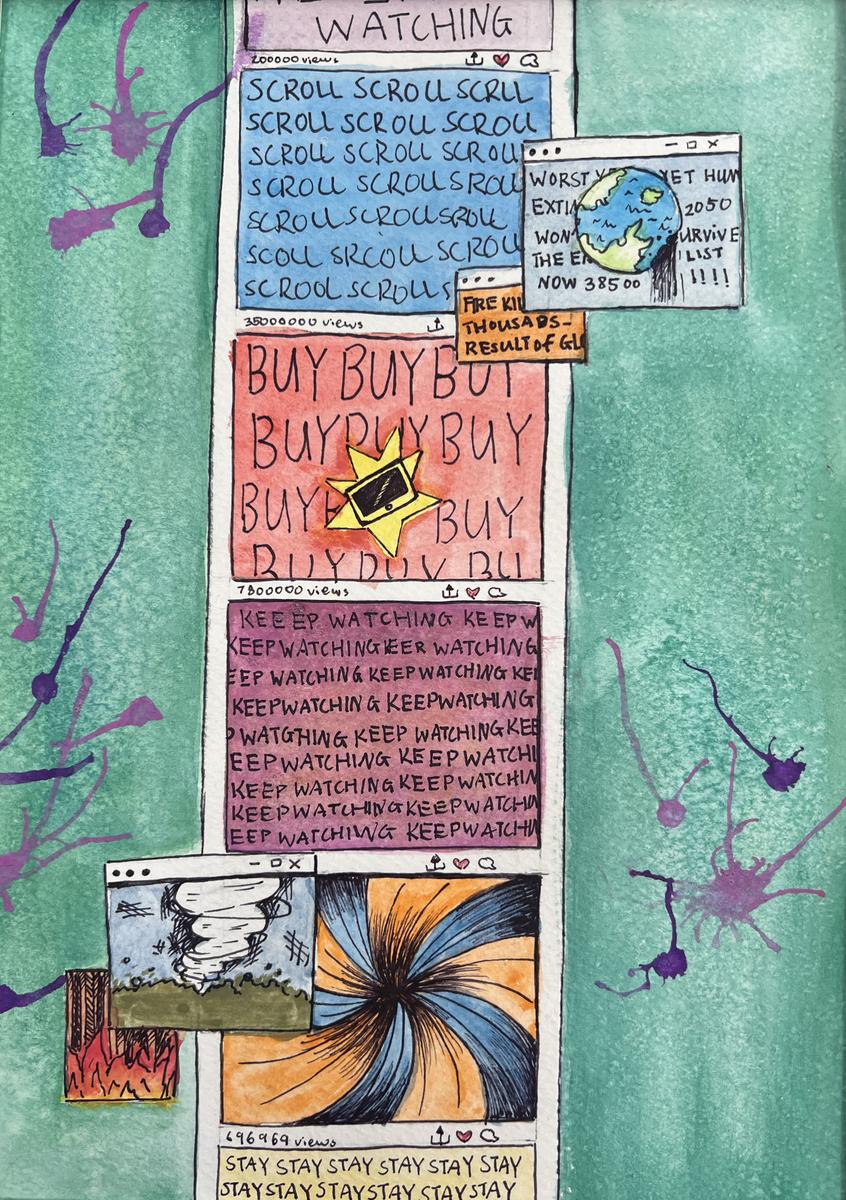 WATCHING
200000 views
SCROLL SCROLL SCRLL
SCROLL SCROLL SCROLL
SCROLL SCROLL SCROLL
SCROLL SCROLL SROLL
SCROLL SCROLL SROLL
SCOLL SRCOLL SCROLL
SCROOL SCROLL S
WORST YET HUM
EXTIN 2050
WON' URVIVE
THE EN LIST
NOW 38500 !!!!
FIRE KIL
THOUSADS-
RESULT of GL
35000000 views
BUY BUY BUY
BUY BUY BUY
BUY BUY
BUY BUY BU
7800000 views
KEEEP WATCHING KEEP W
KEEP WATCHING KEER WATCHING
EEP WATCHING KEEP WATCHING KEE
KEEPWATCHING KEEPWATCHING
P WATGHING KEEP WATCHING KEE
EEP WATCHING KEEP WATCHI
KEEP WATCHING KEEP WATCHIN
KEEP WATCHING KEEP WATCHIN
EEP WATCHING KEEPWATCHIN
696969 views
STAY STAY STAY STAY STAY STAY
STAY STAY STAY STAY STAY STAY